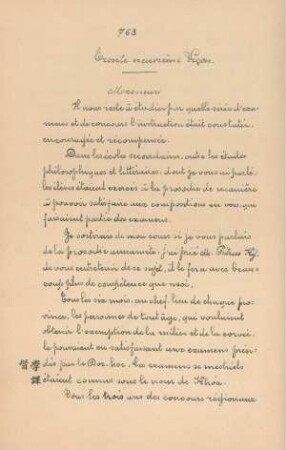 763
Trente neuvième Leçon.
Messieurs
Il nous reste à étudier par quelle série d'exa-
mens et de concours l'instruction était constatée,
encouragée et récompensée.
Dans les écoles secondaires, outre les études
philosophiques et littéraires, dont je vous ai parlé,
les élèves étaient exercés à la prosodie de manière
à pouvoir satisfaire aux compositions en vers, qui
faisaient partie des examens.
Je sortirais de mon cours si je vous parlais
de la prosodie annamite; j'ai prié M. Petrus Ký
de vous entretenir de ce sujet, il le fera avec beau-
coup plus de compétence que moi.
Tous les six mois, au chef-lieu de chaque pro-
vince, les personnes de tout âge, qui voulaient
obtenir l'exemption de la milice et de la corvée,
le pouvaient en satisfaisant aux examens prési-
dés par le Doc-hoc. Ces examens semestriels
習 學 étaient connus sous le nom de Khoa.
課
Tous les trois ans des concours régionaux